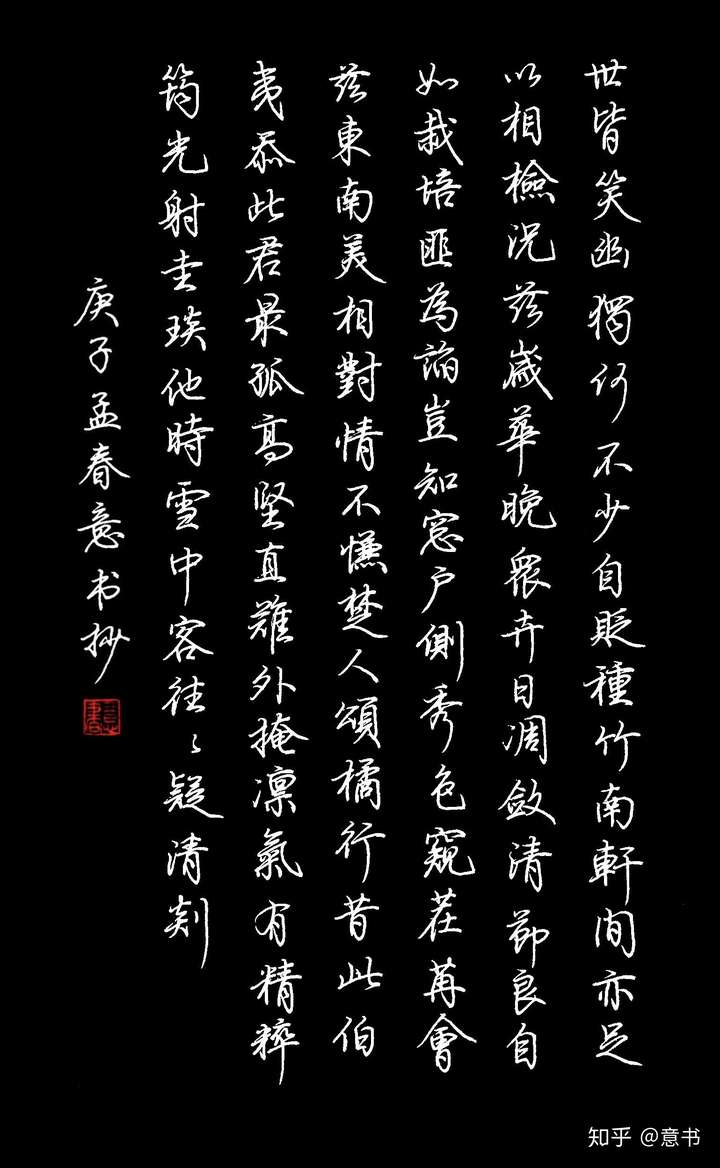 世皆笑幽獨何不少自貶種竹南軒間亦足
以相檢況茲歲華晚眾卉日凋斂清節良自
如栽培匪為諂豈知窓戶側秀色窺荏苒會
茲東南美相對情不慊楚人頌橘行昔此伯
夷忝此君最孤高堅直難外掩凛氣有精粹
筠光射圭琰他時雪中客往〻疑清剡
庚子孟春意书抄
意書
知乎 @意书